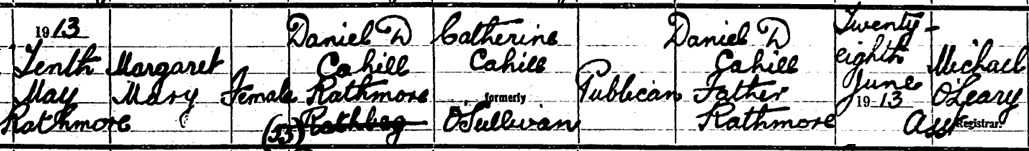 1913
Tenth
May
Rathmore
Margaret
Mary
Female
Daniel D
Cahill
Rathmore
(53) Rathbeg
Catherine
Cahill
formerly
O'Sullivan
Publican
Daniel D
Cahill
Father
Rathmore
Twenty-
eighth
June
1913
Michael
O'Leary
Asst Registrar.